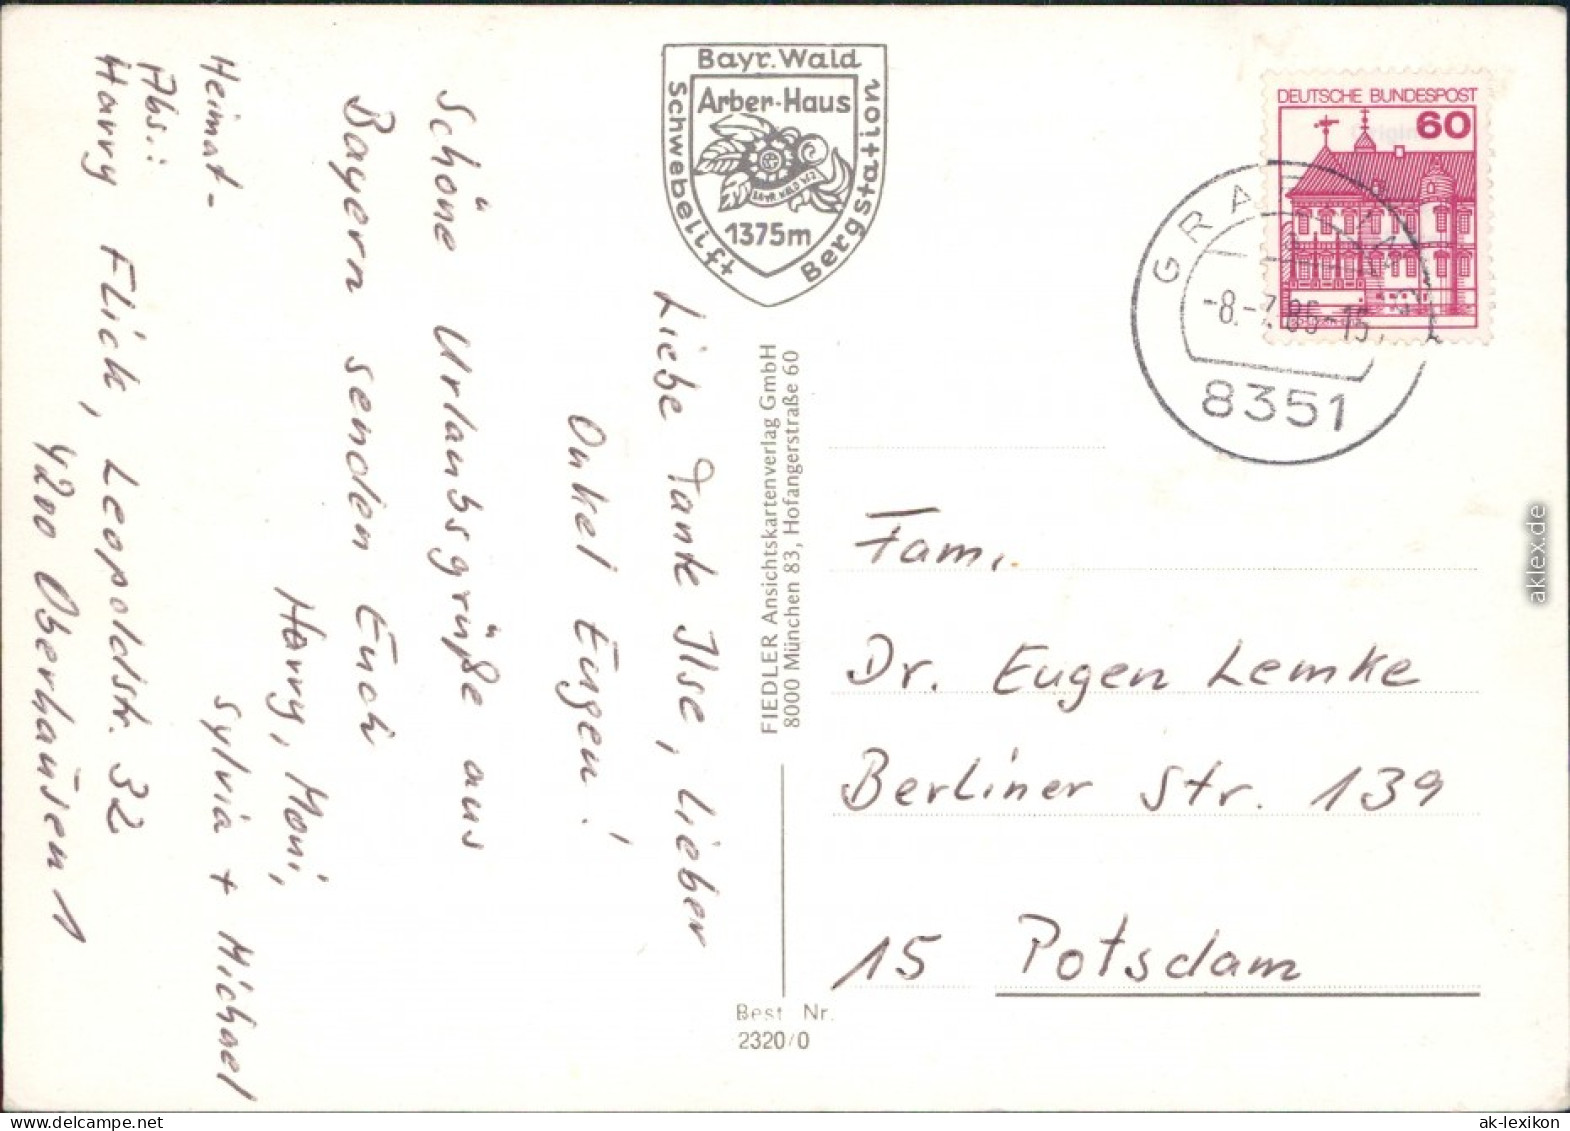 Bayr. Wald
Arber-Haus
BAYR. WALD
1375m
Schwebelift
Bergstation
Liebe Tante Ilse, Lieber
Onkel Eugen!
Schöne Urlaubsgrüße aus
Bayern senden Euch
Harry, Moni,
Sylvia + Michael
Heimat-
Abs.:
Harry Flick, Leopoldstr. 32
4200 Oberhausen 1
FIEDLER Ansichtskartenverlag GmbH
8000 München 83, Hofangerstraße 60
Best. Nr.
2320/0
DEUTSCHE BUNDESPOST
60
8351
Fam.
Dr. Eugen Lemke
Berliner Str. 139
15 Potsdam
aklex.de
ak-lexikon